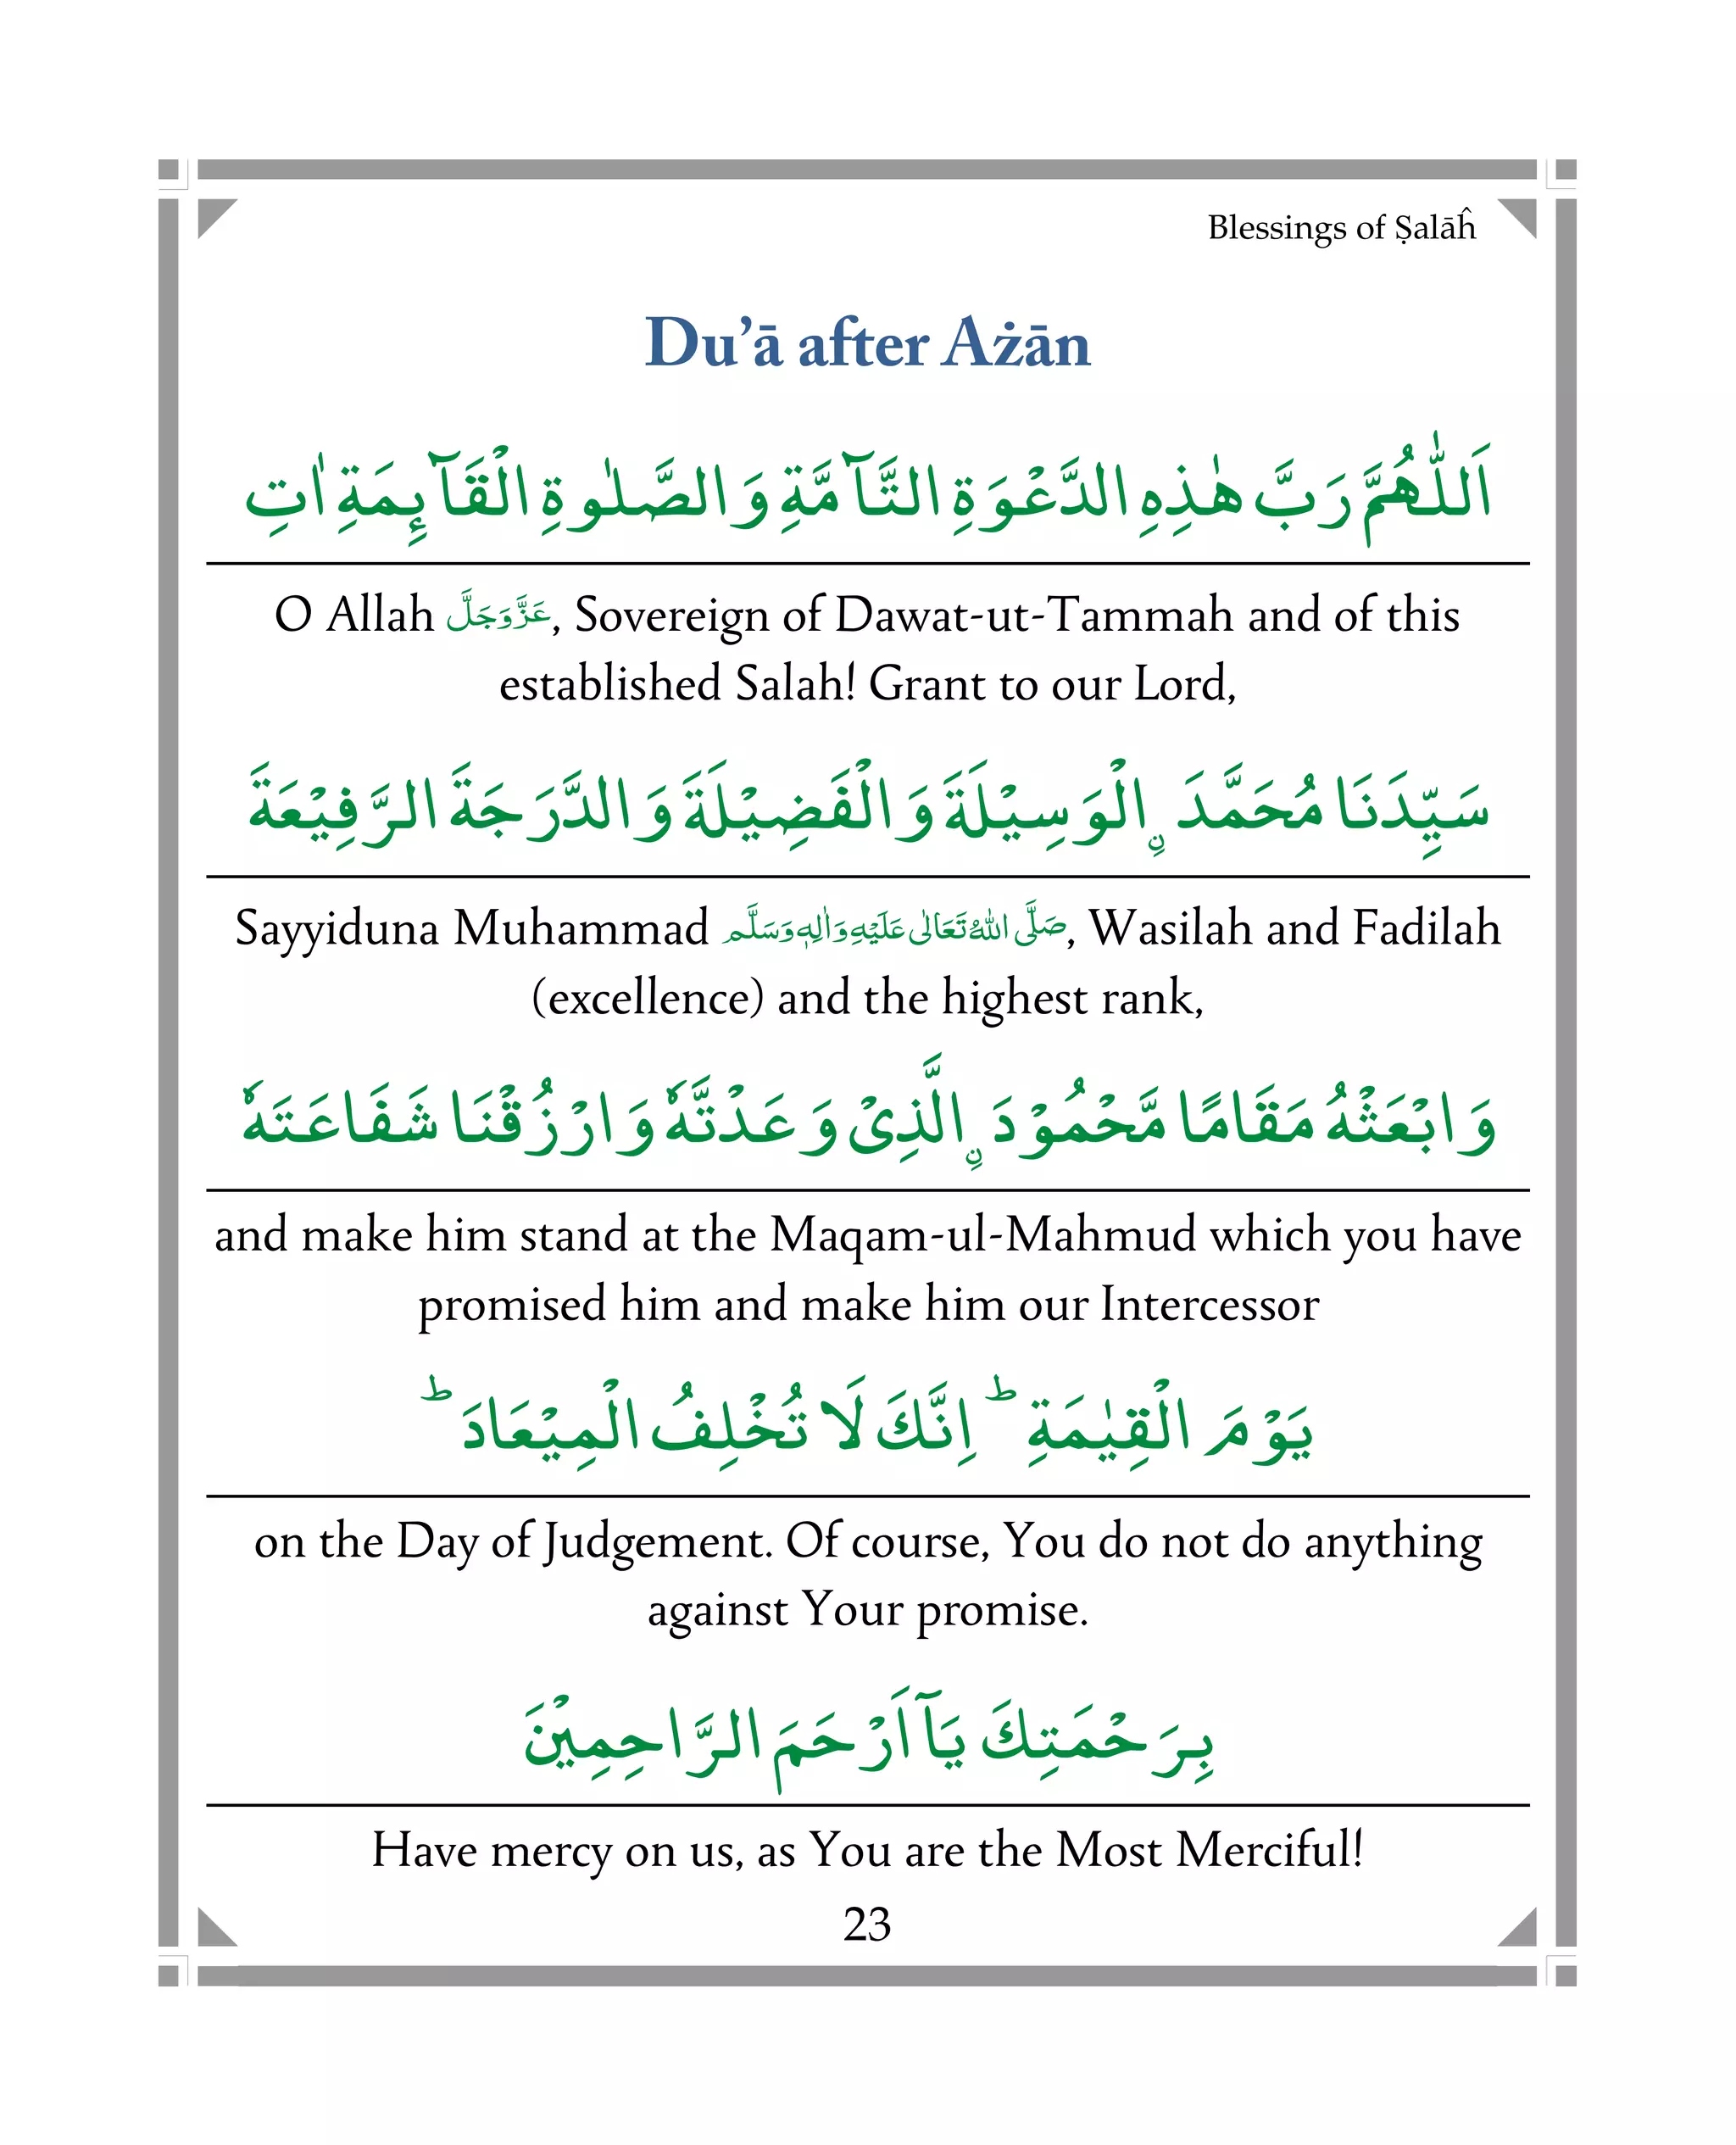 Blessings of Ṣalāĥ
Du’ā after Ażān
اَللّٰهُمَّ رَبَّ هٰذِهِ الدَّعْوَةِ التَّآمَّةِ وَ الصَّلٰوةِ الْقَآئِمَةِ اٰتِ
O Allah عَزَّوَجَلَّ, Sovereign of Dawat-ut-Tammah and of this
established Salah! Grant to our Lord,
سَيِّدَنَا مُحَمَّدَ ِۨ الْوَسِيْلَةَ وَ الْفَضِيْلَةَ وَ الدَّرَجَةَ الرَّفِيْعَةَ
Sayyiduna Muhammad صَلَّى اللهُ تَعَالٰى عَلَيْهِ وَاٰلِهٖ وَسَلَّم, Wasilah and Fadilah
(excellence) and the highest rank,
وَ ابْعَثْهُ مَقَامًا مَّحْمُوْدَ ِۨ الَّذِىْ وَعَدْتَّهٗ وَ ارْزُقْنَا شَفَاعَتَهٗ
and make him stand at the Maqam-ul-Mahmud which you have
promised him and make him our Intercessor
يَوْمَ الْقِيٰمَةِ ؕ اِنَّكَ لَا تُخْلِفُ الْمِيْعَادَ ؕ
on the Day of Judgement. Of course, You do not do anything
against Your promise.
بِرَحْمَتِكَ يَآ اَرْحَمَ الرَّاحِمِيْنَ
Have mercy on us, as You are the Most Merciful!
23